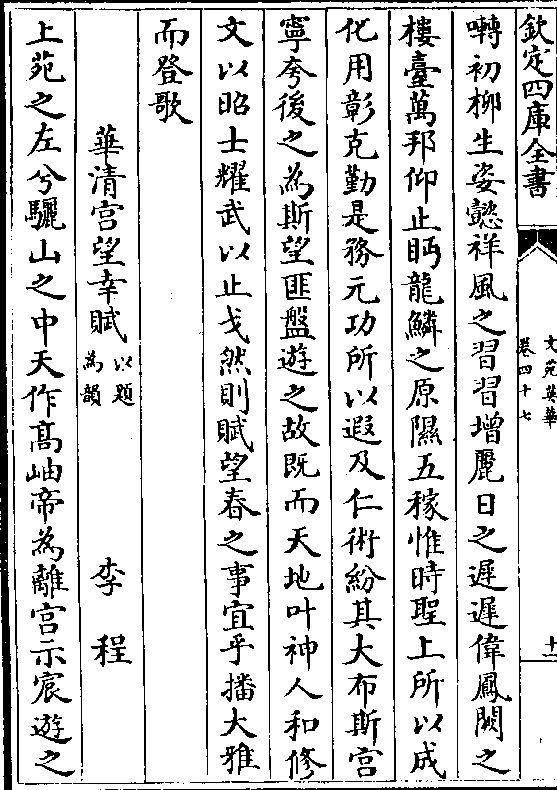 欽定四庫全書
文苑英華
卷四十七
十一
囀初柳生姿懿祥風之習習增麗日之遲遲偉鳳闕之
樓臺萬邦仰止眄龍鱗之原隰五稼惟時聖上所以成
化用彰克勤是務元功所以遐及仁術紛其大布斯宮
寧夸後之為斯望匪盤遊之故既而天地叶神人和修
文以昭士耀武以止戈然則賦望春之事宜乎播大雅
而登歌
華清宮望幸賦以題為韻 李程
上苑之左兮驪山之中天作高岫帝為離宮示宸遊之